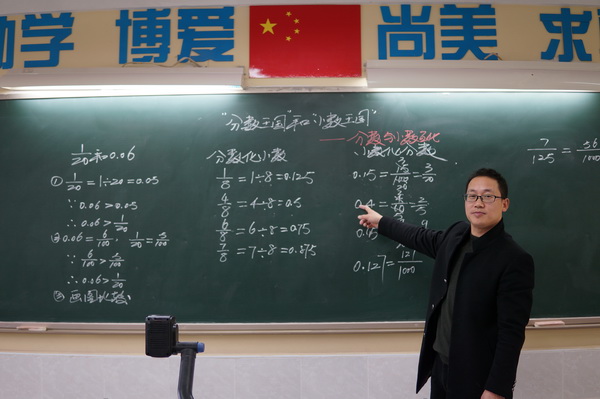 励学 博爱 尚美 求
"分数王国"和"小数王国"
——分数与小数互化
1/20和0.06
① 1/20=1÷20=0.05
∵0.06>0.05
∴0.06>1/20
②0.06=6/100, 1/20=5/100
∵6/100>5/100
∴0.06>1/20
③画图比较
分数化小数
1/8=1÷8=0.125
4/8=4÷8=0.5
6/8=6÷8=0.75
7/8=7÷8=0.875
小数化分数
0.15=15/100=3/20
0.4=4/10=2/5
0.127=127/1000
7/125=56/100